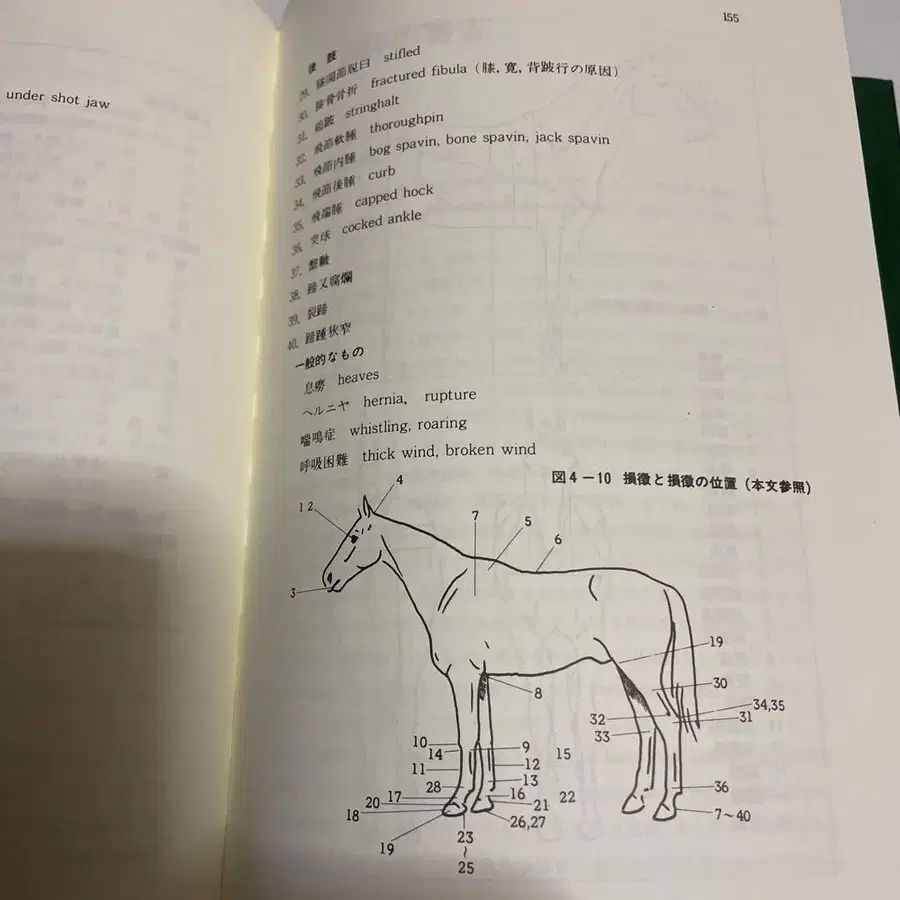 under shot jaw
155
後肢
29. 膝関節脱臼 stifled
30. 腓骨骨折 fractured fibula (膝, 寛, 背跛行の原因)
31. 鶏跛 stringhalt
32. 飛節軟腫 thoroughpin
33. 飛節内腫 bog spavin, bone spavin, jack spavin
34. 飛節後腫 curb
35. 飛端腫 capped hock
36. 突球 cocked ankle
37. 繋皸
38. 蹄叉腐爛
39. 裂蹄
40. 蹄踵狭窄
一般的なもの
息癆 heaves
ヘルニヤ hernia, rupture
喘鳴症 whistling, roaring
呼吸困難 thick wind, broken wind
図4-10 損徴と損徴の位置 (本文参照)
1 2
4
7
5
6
3
19
30
8
34,35
31
32
33
10
14
9
15
11
12
13
28
36
17
16
22
20
21
18
7~40
26,27
19
23
~
25